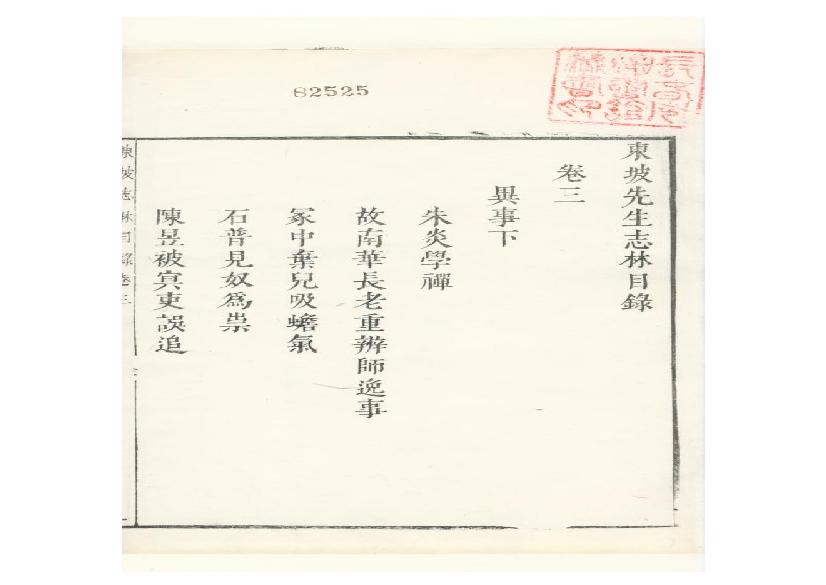 82525
東坡先生志林目錄
卷三
異事下
朱炎學禪
故南華長老重辨師逸事
冢中棄兒吸蟾氣
石普見奴爲祟
陳昱被冥吏誤追
東坡志林目錄卷三